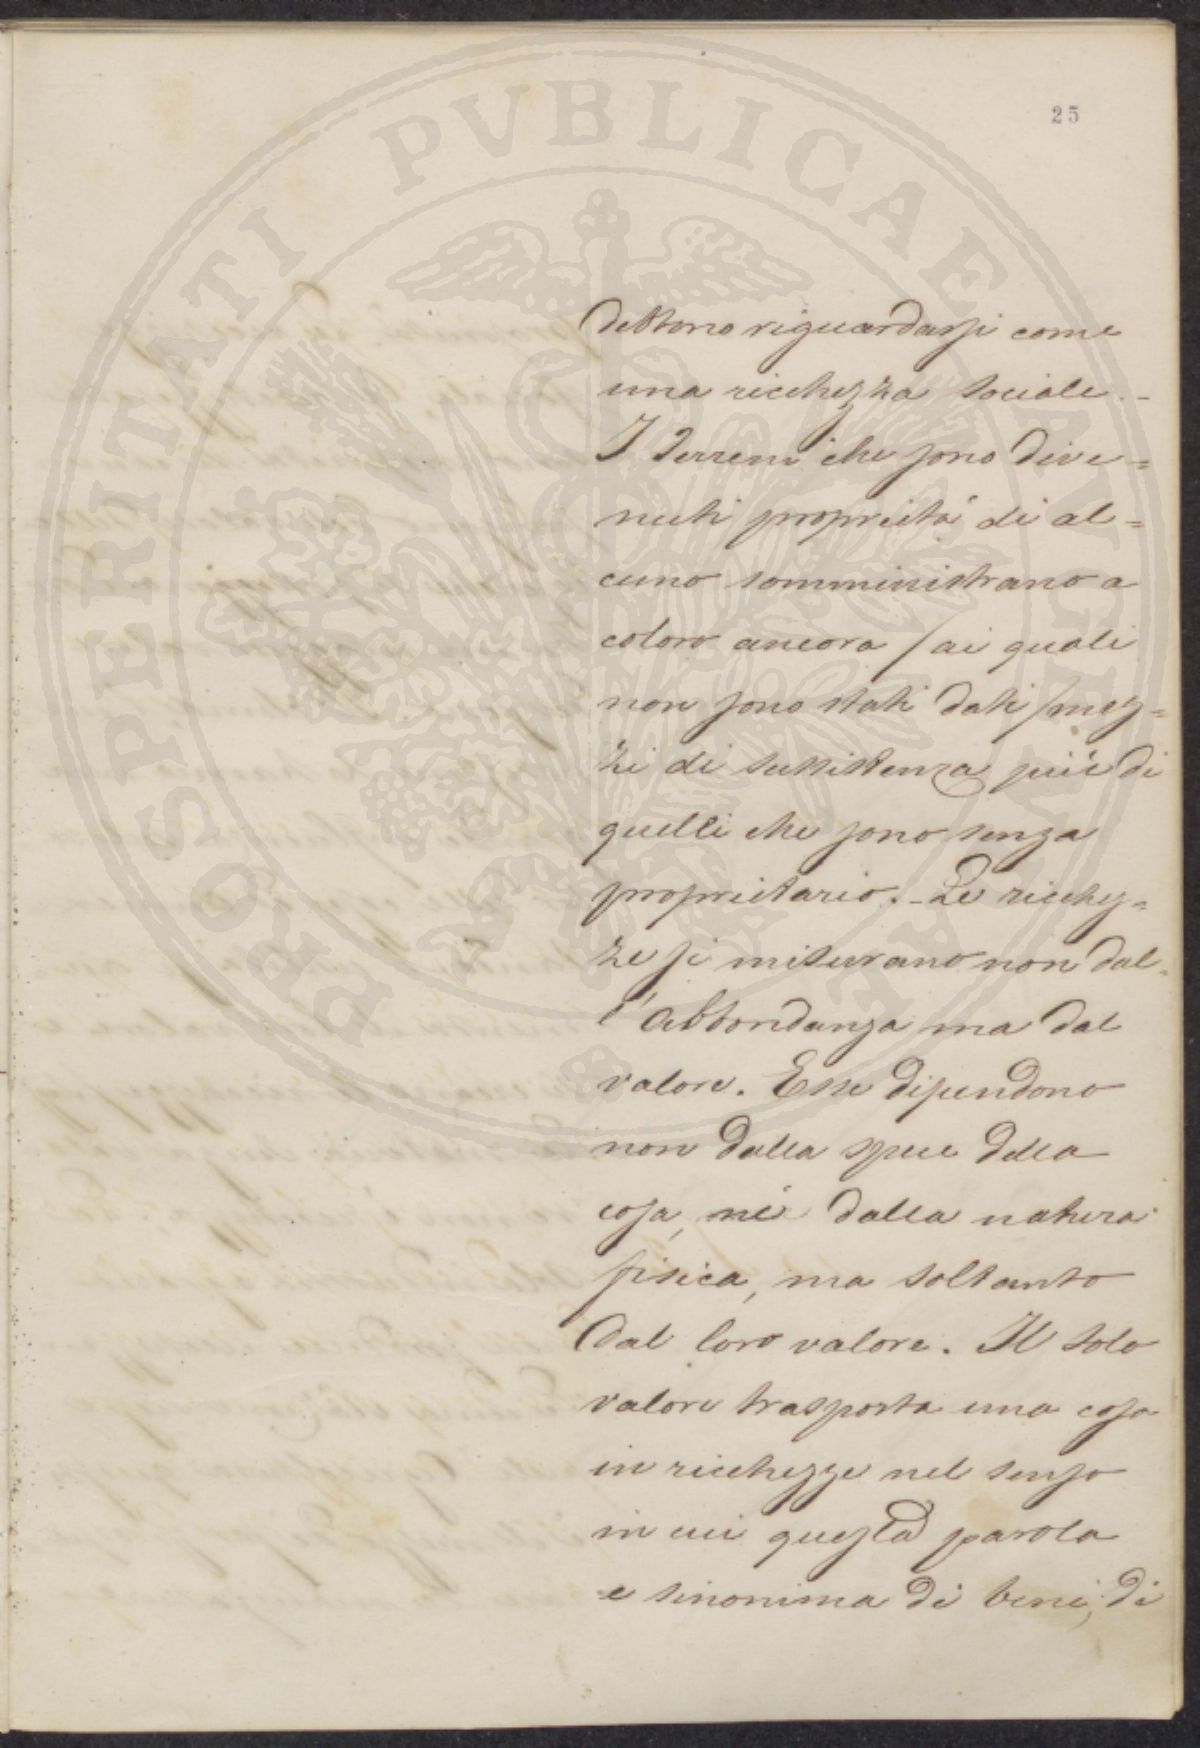 25
PROSPERITATI PVBLICAE AVGENDAE
debbono riguardarsi come
una ricchezza sociale. -
I Terreni che sono dive=
nuti proprietá di al=
cuno somministrano a
coloro ancora / ai quali
non sono stati dati / mez=
zi di sussistenza piú di
quelli che sono senza
proprietario. - Le ricchez=
ze si misurano non dal=
l'abbondanza ma dal
valore. Esse dipendono
non dalla specie della
cosa, né dalla natura
fisica, ma soltanto
dal loro valore. Il solo
valore trasporta una cosa
in ricchezze nel senso
in cui questa parola
e sinonima di beni, di